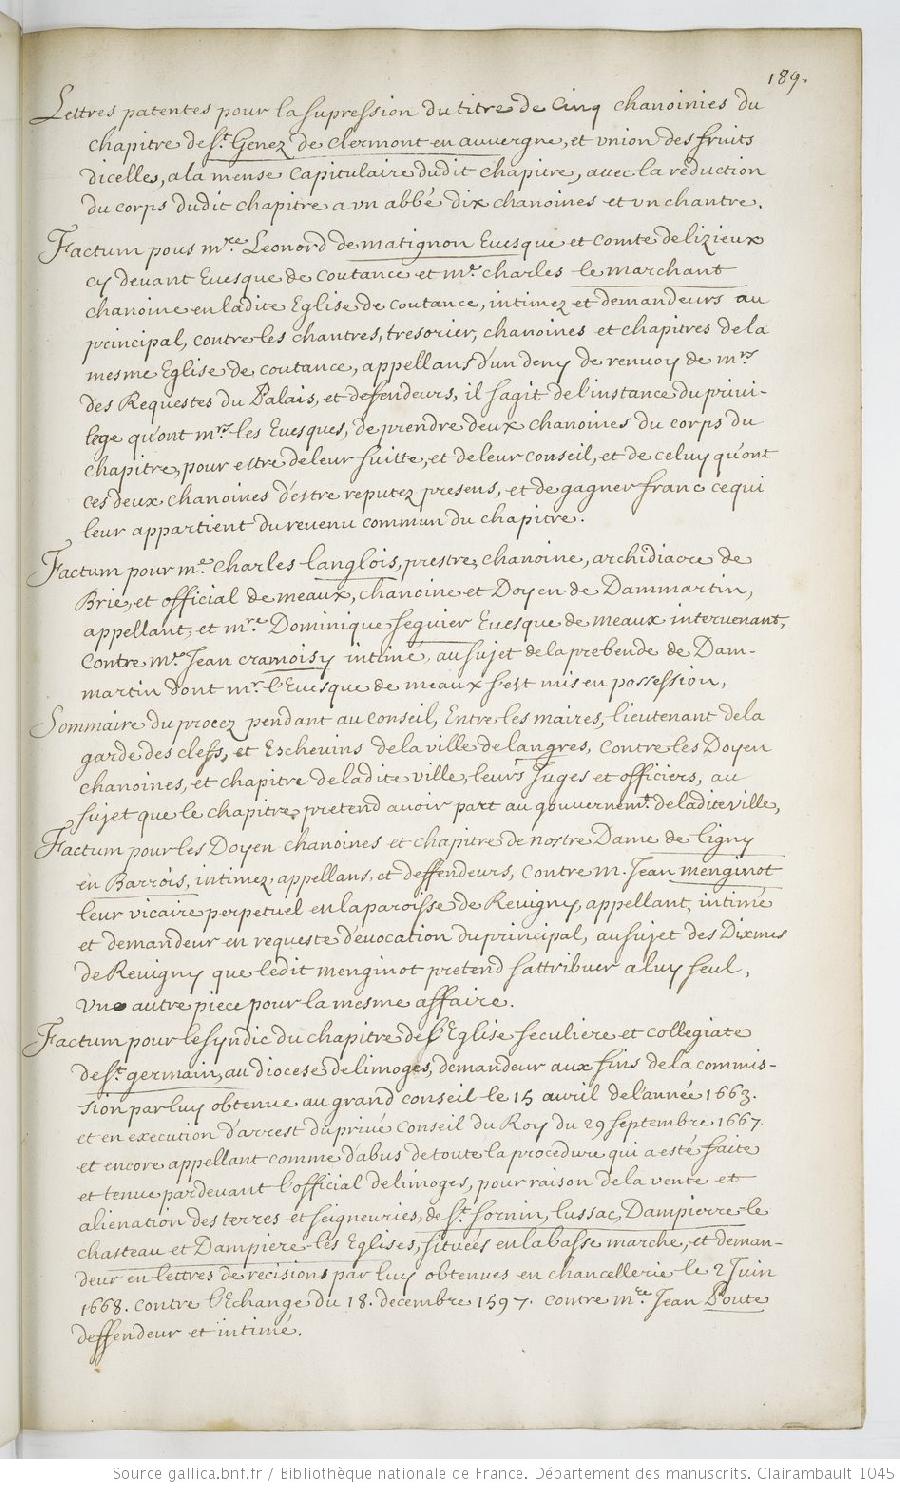 189.
Lettres patentes pour la supression du titre de Cinq chanoinies du
chapitre de st. Genez de clermont en auvergne, et vnion des fruits
dicelles, a la mense Capitulaire dudit chapitre, avec la réduction
du corps dudit chapitre a vn abbé dix chanoines et vn chantre.
Factum pous mre. Leonord de matignon Euesque et comte de lizieux
cy devant Euesque de coutance et mr. charles le marchant
chanoine en ladite Eglise de coutance, intimez et demandeurs au
principal, contre les chantres, tresorier, chanoines et chapitres de la
mesme Eglise de coutance, appellans d'un deny de renvoy de mrs
des Requestes du Palais, et deffendeurs, il s'agit de l'instance du priui-
lege qu'ont mrs. les Euesques, de prendre deux chanoines du corps du
chapitre, pour estre de leur suitte, et de leur conseil, et de celuy qu'ont
ces deux chanoines d'estre reputez presens, et de gagner franc ce qui
leur appartient du revenu commun du chapitre.
Factum pour me. Charles langlois, prestre, chanoine, archidiacre de
Brie, et official de meaux, chanoine et Doyen de Dammartin,
appellant, et mre Dominique seguier Euesque de meaux intervenant,
contre me. Jean cramoisy intimé, au sujet de la prebende de Dam-
martin dont mr. l'Euesque de meaux s'est mis en possession,
Sommaire du procez pendant au Conseil, Entre les maires, lieutenant de la
garde des clefs, et Eschevins de la ville de langres, contre les Doyen
chanoines, et chapitre de ladite ville, leurs Juges et officiers, au
sujet que le chapitre pretend avoir part au gouvernemt. de ladite ville,
Factum pour les Doyen chanoines et chapitre de nostre Dame de ligny
en Barrois, intimez, appellans, et deffendeurs, contre m. Jean menginot
leur vicaire perpetuel en la paroisse de Reuigny, appellant, intimé
et demandeur en requeste d'évocation du principal, au sujet des Dixmes
de Reuigny que ledit menginot pretend s'attribuer a luy seul,
Vne autre piece pour la mesme affaire.
Factum pour le syndic du chapitre de l'Eglise seculiere et collegiate
de st. germain, au diocese de limoges, demandeur aux fins de la commis-
sion par luy obtenue au grand conseil le 15 avril de l'année 1663.
et en execution d'arrest du privé Conseil du Roy du 29 septembre 1667.
et encore appellant comme d'abus de toute la procedure qui a esté faite
et tenue pardevant l'official de limoges, pour raison de la vente et
alienation des terres et seigneuries, de st. sornin, lussac, Dampierre le
chasteau et Dampiere les Eglises, situées en la basse marche, et deman-
deur en lettres de recisions par luy obtenues en chancellerie le 2 Juin
1668. contre l'Echange du 18. decembre 1597. contre mre. Jean Poute
deffendeur et intimé.
Source gallica.bnf.fr / Bibliothèque nationale de France. Département des manuscrits. Clairambault 1045